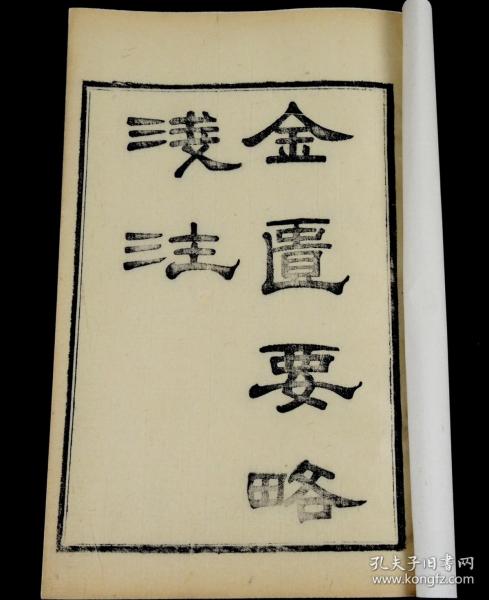 金匱要略
淺注
孔夫子旧书网
www.kongfz.com